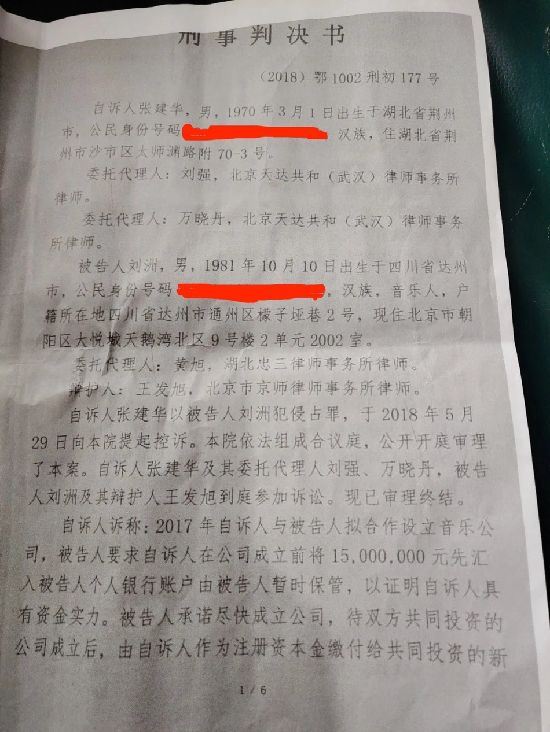 刑事判决书
（2018）鄂1002刑初177号
自诉人张建华，男，1970年3月1日出生于湖北省荆州
市，公民身份号码，汉族，住湖北省荆
州市沙市区太师渊路附70-3号。
委托代理人：刘强，北京天达共和（武汉）律师事务所
律师。
委托代理人：万晓丹，北京天达共和（武汉）律师事务
所律师。
被告人刘洲，男，1981年10月10日出生于四川省达州
市，公民身份号码，汉族，音乐人，户
籍所在地四川省达州市通州区檬子垭巷2号，现住北京市朝
阳区大悦城天鹅湾北区9号楼2单元2002室。
委托代理人：黄旭，湖北忠三律师事务所律师。
辩护人：王发旭，北京市京师律师事务所律师。
自诉人张建华以被告人刘洲犯侵占罪，于2018年5月
29日向本院提起控诉。本院依法组成合议庭，公开开庭审理
了本案。自诉人张建华及其委托代理人刘强、万晓丹，被告
人刘洲及其辩护人王发旭到庭参加诉讼。现已审理终结。
自诉人诉称：2017年自诉人与被告人拟合作设立音乐公
司，被告人要求自诉人在公司成立前将15,000,000元先汇
入被告人个人银行账户由被告人暂时保管，以证明自诉人具
有资金实力。被告人承诺尽快成立公司，待双方共同投资的
公司成立后，由自诉人作为注册资本金缴付给共同投资的新
1/6